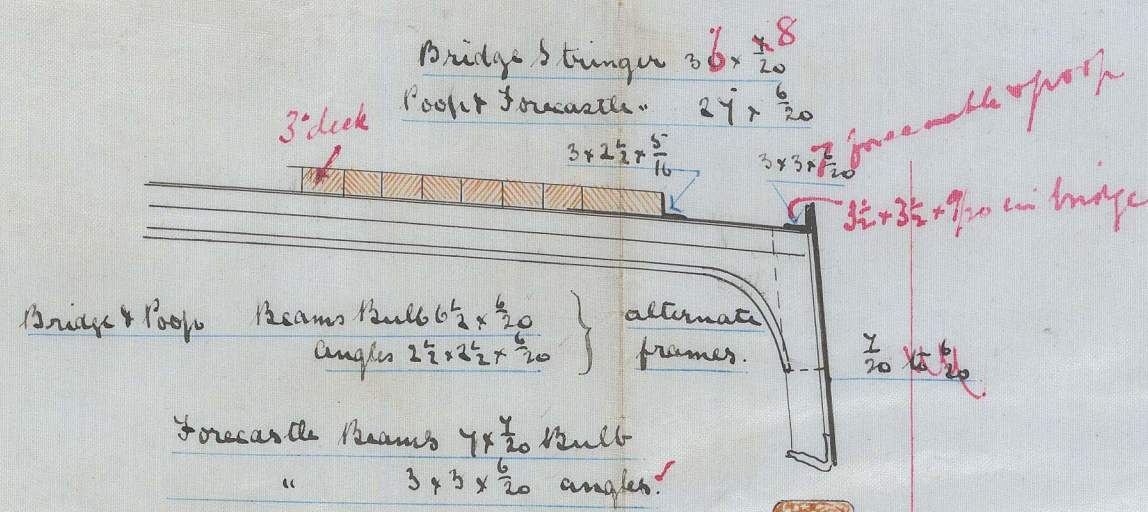 Bridge Stringer 36 × 8/20
Poop & Forecastle " 27 × 6/20
3" deck
3 × 2½ × 5/16
3 × 3 × 7/20 forecastle & poop
3½ × 3½ × 9/20 in bridge
Bridge & Poop Beams Bulb 6½ × 6/20
angles 2½ × 2½ × 6/20
alternate
frames.
7/20 to 6/20
Forecastle Beams 7 × 7/20 Bulb
" 3 × 3 × 6/20 angles.